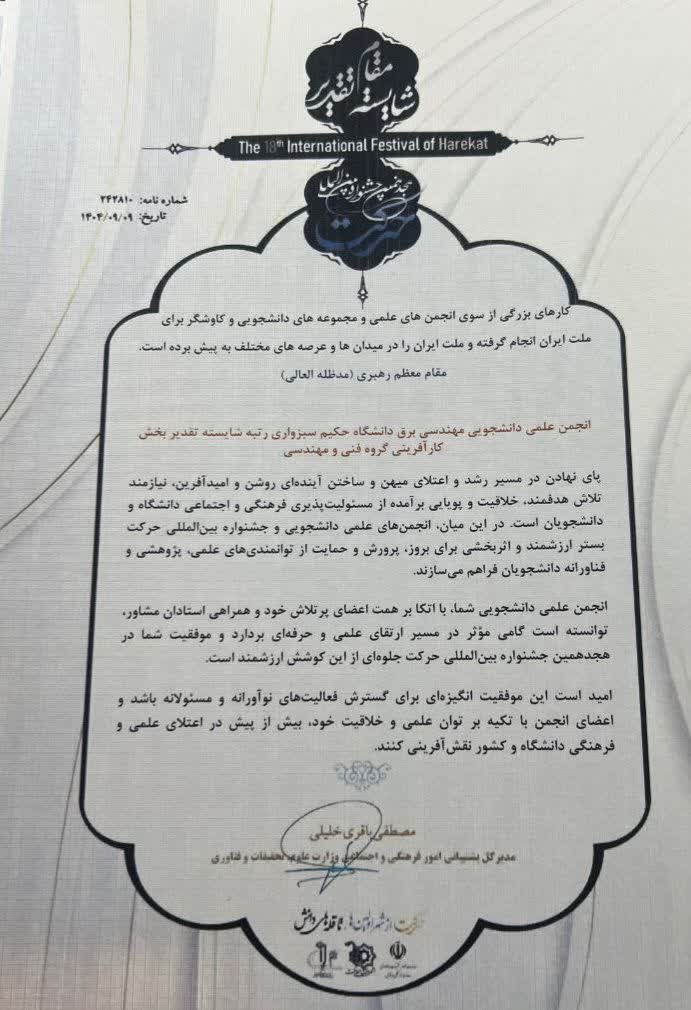 شایسته مقام تقدیر
The 18th International Festival of Harekat
هجدهمین جشنواره بین‌المللی
حرکت
شماره نامه: ۲۴۲۸۱۰
تاریخ: ۱۴۰۴/۰۹/۰۹
کارهای بزرگی از سوی انجمن های علمی و مجموعه های دانشجویی و کاوشگر برای
ملت ایران انجام گرفته و ملت ایران را در میدان ها و عرصه های مختلف به پیش برده است.
مقام معظم رهبری (مدظله العالی)
انجمن علمی دانشجویی مهندسی برق دانشگاه حکیم سبزواری رتبه شایسته تقدیر بخش
کارآفرینی گروه فنی و مهندسی
پای نهادن در مسیر رشد و اعتلای میهن و ساختن آینده‌ای روشن و امیدآفرین، نیازمند
تلاش هدفمند، خلاقیت و پویایی برآمده از مسئولیت‌پذیری فرهنگی و اجتماعی دانشگاه و
دانشجویان است. در این میان، انجمن‌های علمی دانشجویی و جشنواره بین‌المللی حرکت
بستر ارزشمند و اثربخشی برای بروز، پرورش و حمایت از توانمندی‌های علمی، پژوهشی و
فناورانه دانشجویان فراهم می‌سازند.
انجمن علمی دانشجویی شما، با اتکا بر همت اعضای پرتلاش خود و همراهی استادان مشاور،
توانسته است گامی مؤثر در مسیر ارتقای علمی و حرفه‌ای بردارد و موفقیت شما در
هجدهمین جشنواره بین‌المللی حرکت جلوه‌ای از این کوشش ارزشمند است.
امید است این موفقیت انگیزه‌ای برای گسترش فعالیت‌های نوآورانه و مسئولانه باشد و
اعضای انجمن با تکیه بر توان علمی و خلاقیت خود، بیش از پیش در اعتلای علمی و
فرهنگی دانشگاه و کشور نقش‌آفرینی کنند.
مصطفی باقری خلیلی
مدیرکل پشتیبانی امور فرهنگی و اجتماعی وزارت علوم، تحقیقات و فناوری
حرکت از شهر اولین‌ها، تا قله‌های دانش